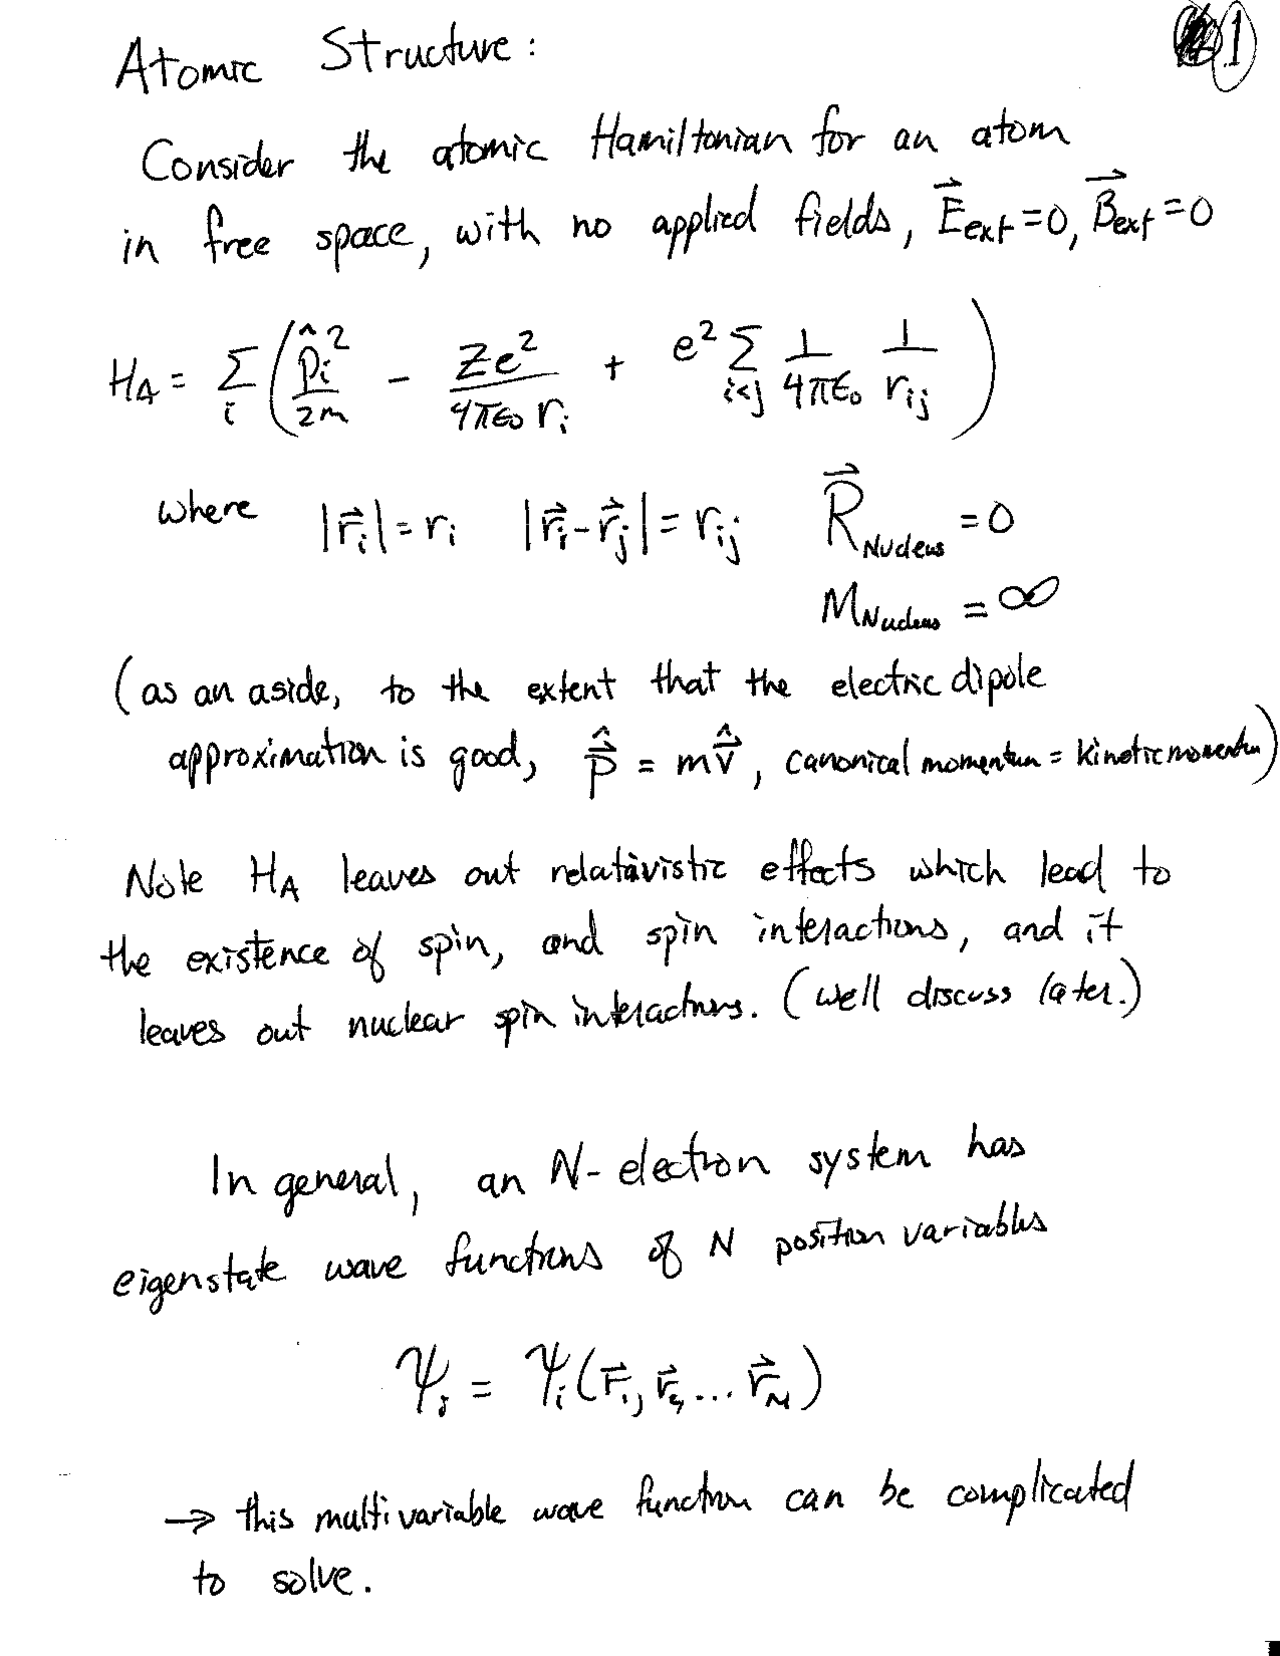 1
Atomic Structure:
Consider the atomic Hamiltonian for an atom
in free space, with no applied fields, $\vec{E}_{ext}=0, \vec{B}_{ext}=0$
$H_A = \sum_i \left( \frac{\hat{p}_i^2}{2m} - \frac{Ze^2}{4\pi\epsilon_0 r_i} + e^2 \sum_{i<j} \frac{1}{4\pi\epsilon_0} \frac{1}{r_{ij}} \right)$
where $|\vec{r}_i| = r_i$ $|\vec{r}_i - \vec{r}_j| = r_{ij}$ $\vec{R}_{Nucleus} = 0$
$M_{Nucleus} = \infty$
(as an aside, to the extent that the electric dipole
approximation is good, $\hat{\vec{p}} = m\hat{\vec{v}}$, canonical momentum = kinetic momentum)
Note $H_A$ leaves out relativistic effects which lead to
the existence of spin, and spin interactions, and it
leaves out nuclear spin interactions. (well discuss later.)
In general, an N-electron system has
eigenstate wave functions of N position variables
$\psi_j = \psi_i(\vec{r}_1, \vec{r}_2, ... \vec{r}_N)$
→ this multivariable wave function can be complicated
to solve.